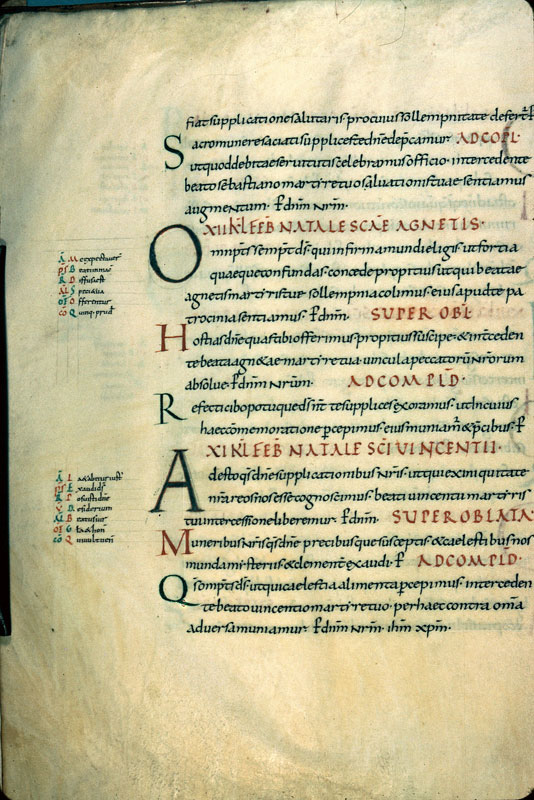 fiat supplicatione salutaris. pro cuius sollempnitate defertur.
Sacro munere saciati supplices te dne depcamur AD COPL.
ut quod debitae seruitutis celebramus officio. intercedente
beato sebastiano martire tuo saluationis tuae sentiamus
augmentum. P dnm Nrm.
XII KL FEB NATALE SCAE AGNETIS.
Omnps sempt ds. qui infirma mundi eligis. ut fortia
quaeque confundas. concede propitius. ut qui beatae
agnetis martiris tuae sollempnia colimus. eius apud te pa
trocinia sentiamus. P dnm. SUPER OBL
Hostias dne quas tibi offerimus. propitius suscipe. & intceden
te beata agn&ae martire tua. uincula peccatorū Nrorum
absolue. P dnm Nrum. AD COMPLD.
Refecti cibo potuque ds nr te supplices exoramus. ut in cuius
haec cōmemoratione pcepimus. eius muniam & pcibus. P
XI KL FEB NATALE SCI UINCENTII.
Adesto qs dne supplicationibus Nris. ut qui ex iniquitate
nra reos nos esse cognoscimus. beati uincentii martiris
tui intercessione liberemur. P dnm. SUPER OBLATA.
Muneribus Nris qs dne precibusque susceptis. & caelestibus nos
munda misteriis. & clement exaudi. P AD COMPLD.
Qs ompt ds. ut qui caelestia alimenta pcepimus. interceden
te beato uincentio martire tuo. per haec contra oma
aduersa muniamur. P dnm Nrm. ihm xpm.
A Me expectauer
PS Beati inma
R Diffusa est
AL Specie tua
OF Offerentur
CO Quinq. prud
A L&abitur iust
PS Exaudi ds
R Posuisti dne
V Desiderium
AL Beatus uir
OF Gla & hon
CO Qui uult uen